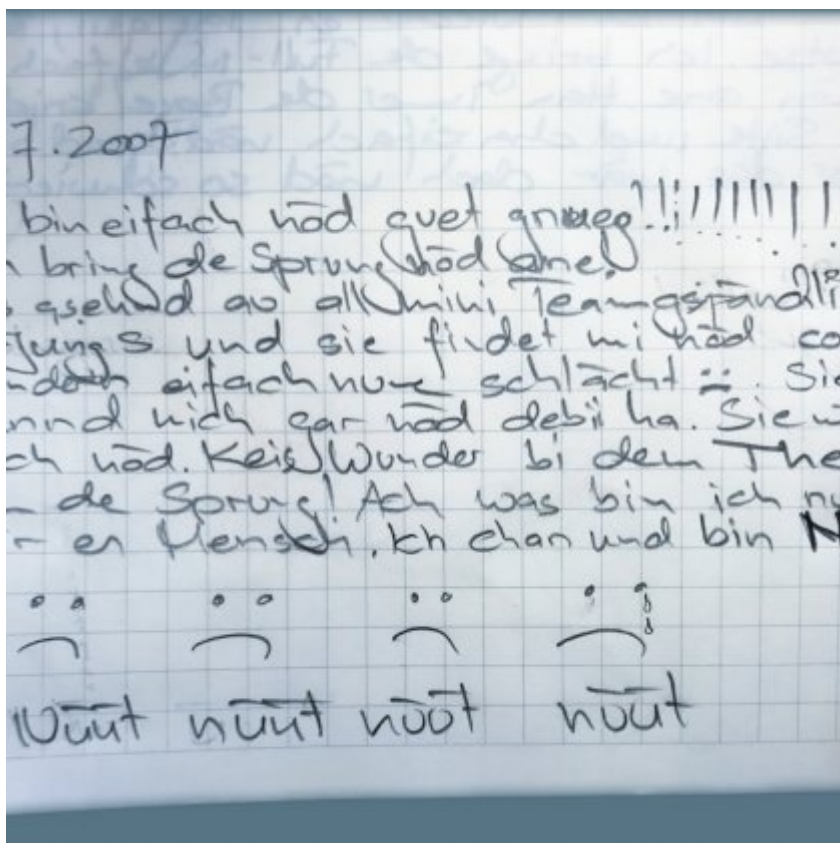 7.2007
bin eifach nöd guet gnueg!!!!!!!!!!
bring de Sprung nöd ane!
gsehnd au all mini Teamgspändli
Jungs und sie findet mi nöd co
eifach nur schlächt :. Sie
mich gar nöd debii ha. Sie
ch nöd. Keis Wunder bi dem The
de Sprung! Ach was bin ich
en Mensch. Ich chan und bin N
nüüt nüüt nüüt nüüt